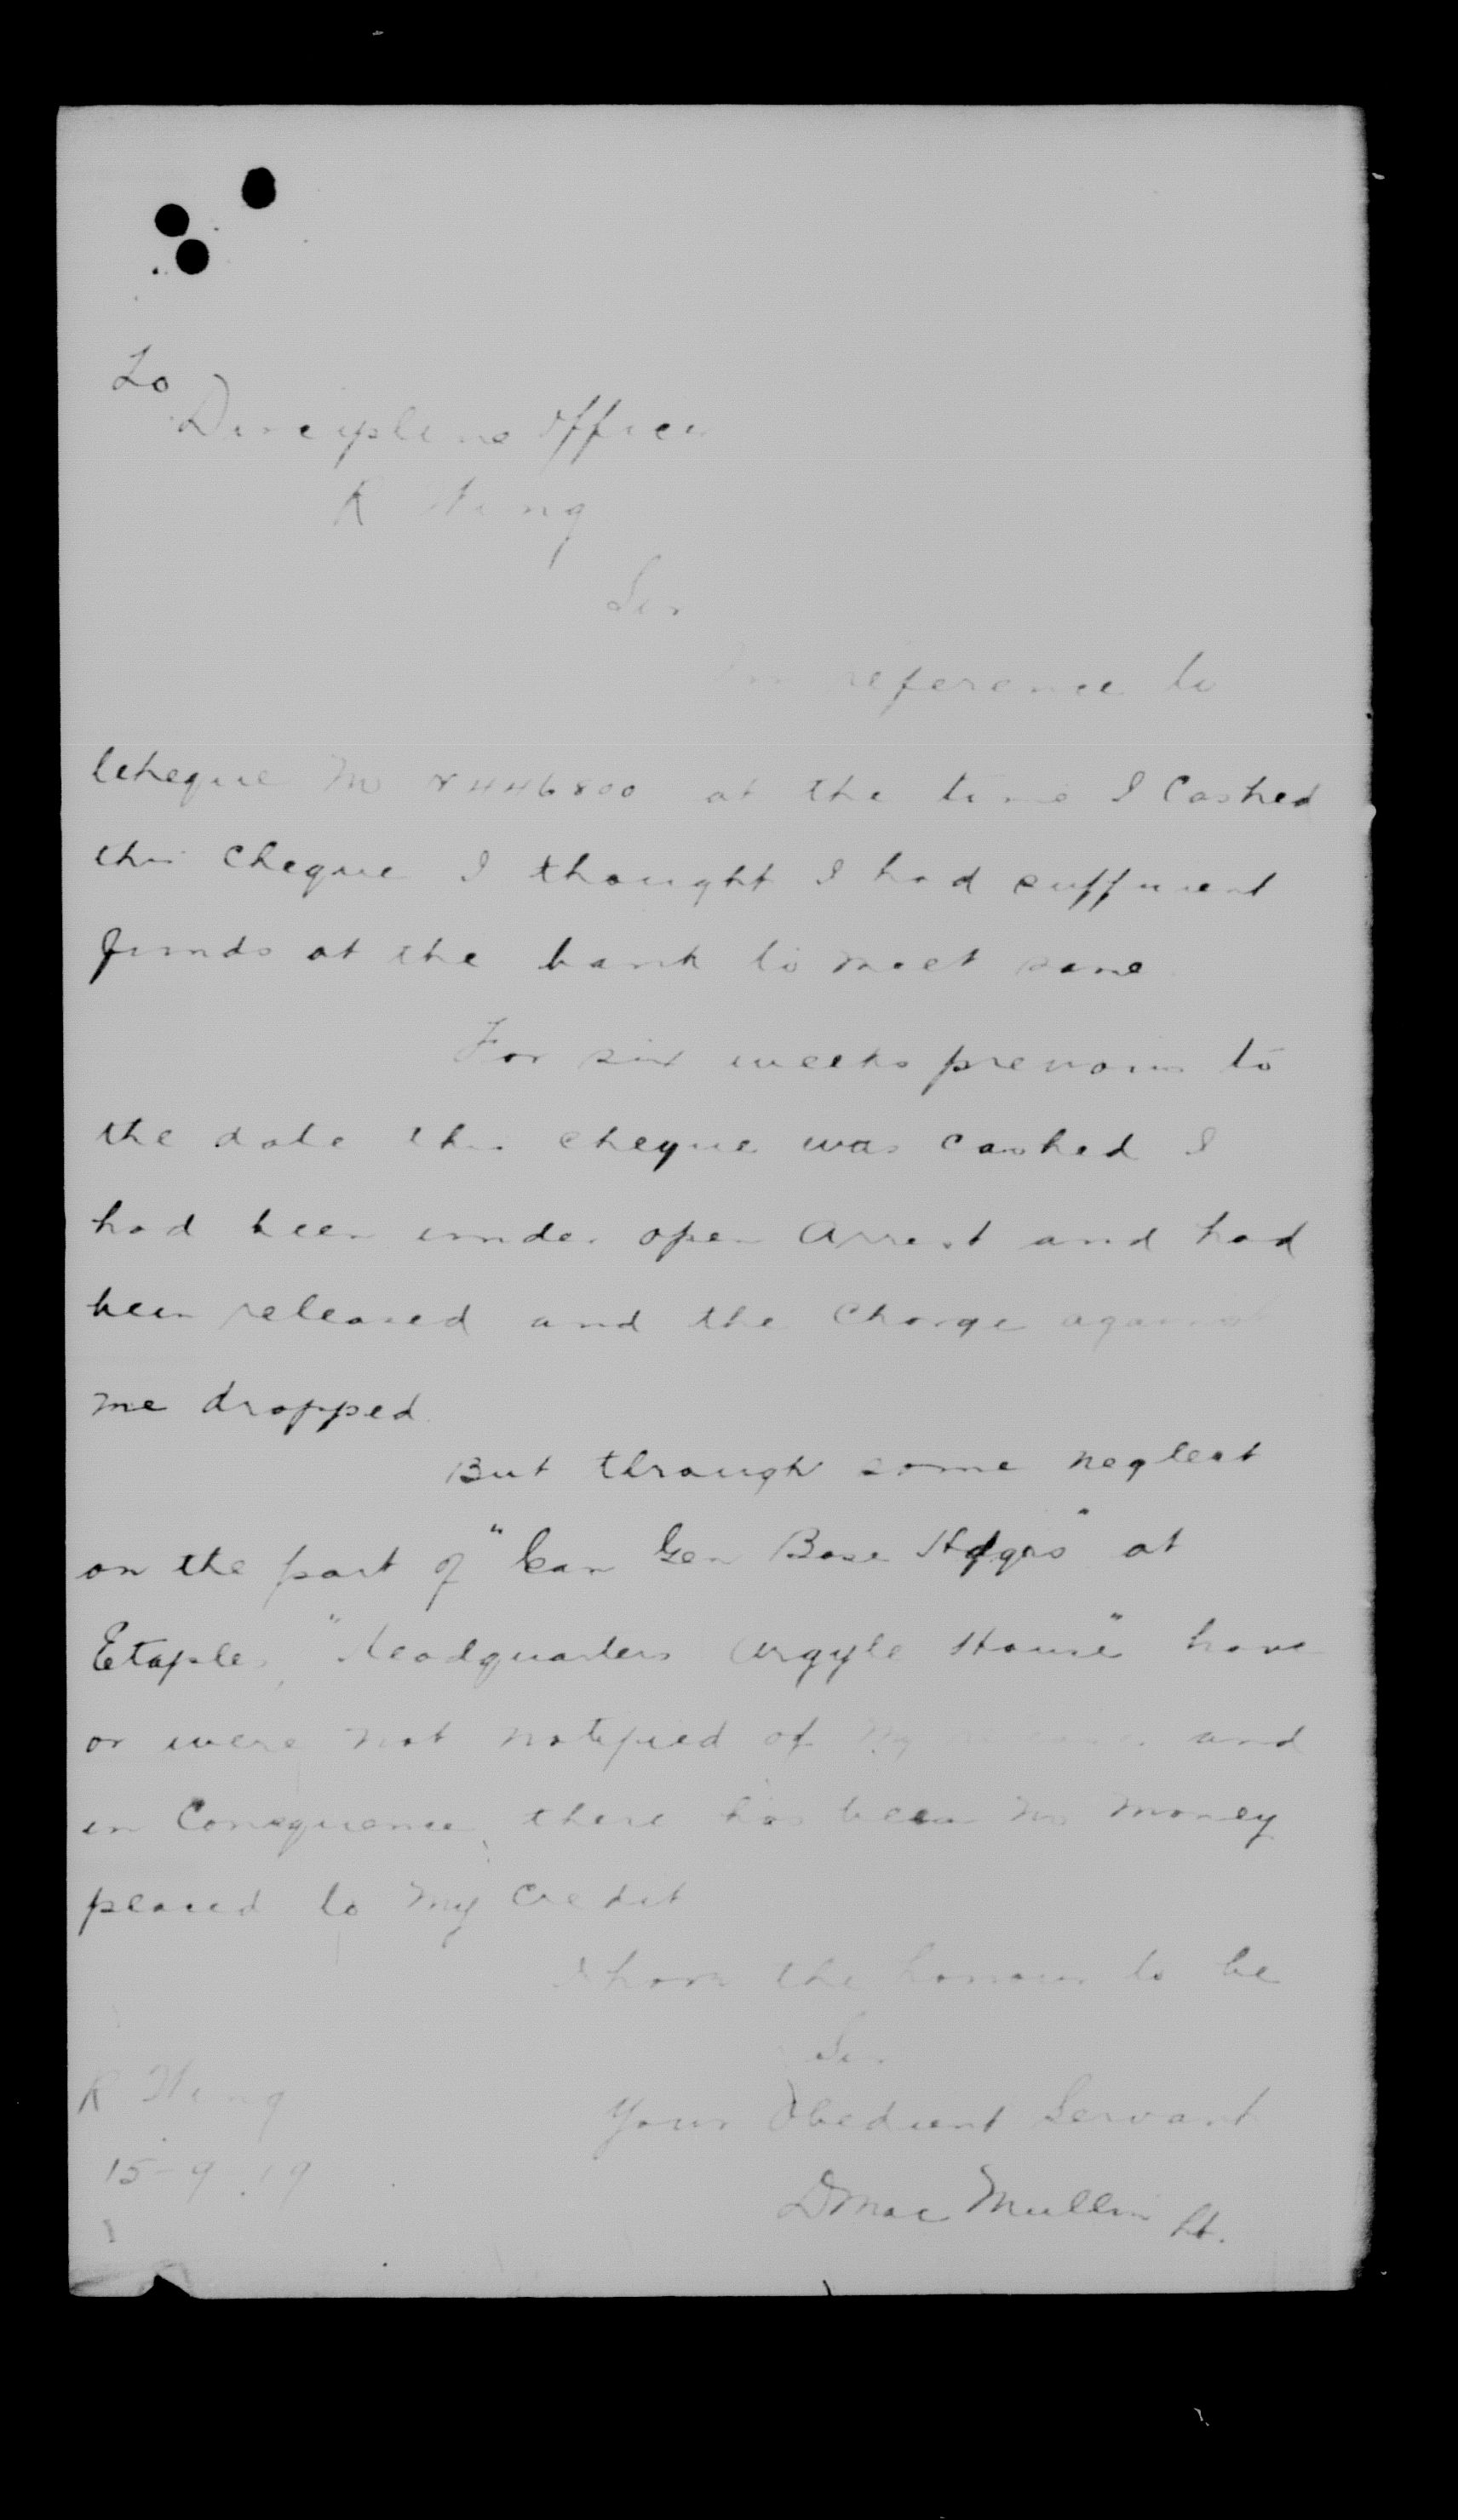 To
Discipline Officer
R Wing
Sir
In reference to
Cheque No 8446800 at the time I Cashed
this Cheque I thought I had sufficient
funds at the bank to meet same
For six weeks previous to
the date this cheque was cashed I
had been under open Arrest and had
been released and the Charge against
me dropped.
But through some neglect
on the part of "Can Gen Base Hdqrs" at
Etaples, "Headquarters Argyle House" have
or were not notified of my and
in Consequence there has been no money
placed to my Credit
I have the honour to be
Sir
Your Obedient Servant
R Wing
15-9-19
D Mac Mullin Lt.